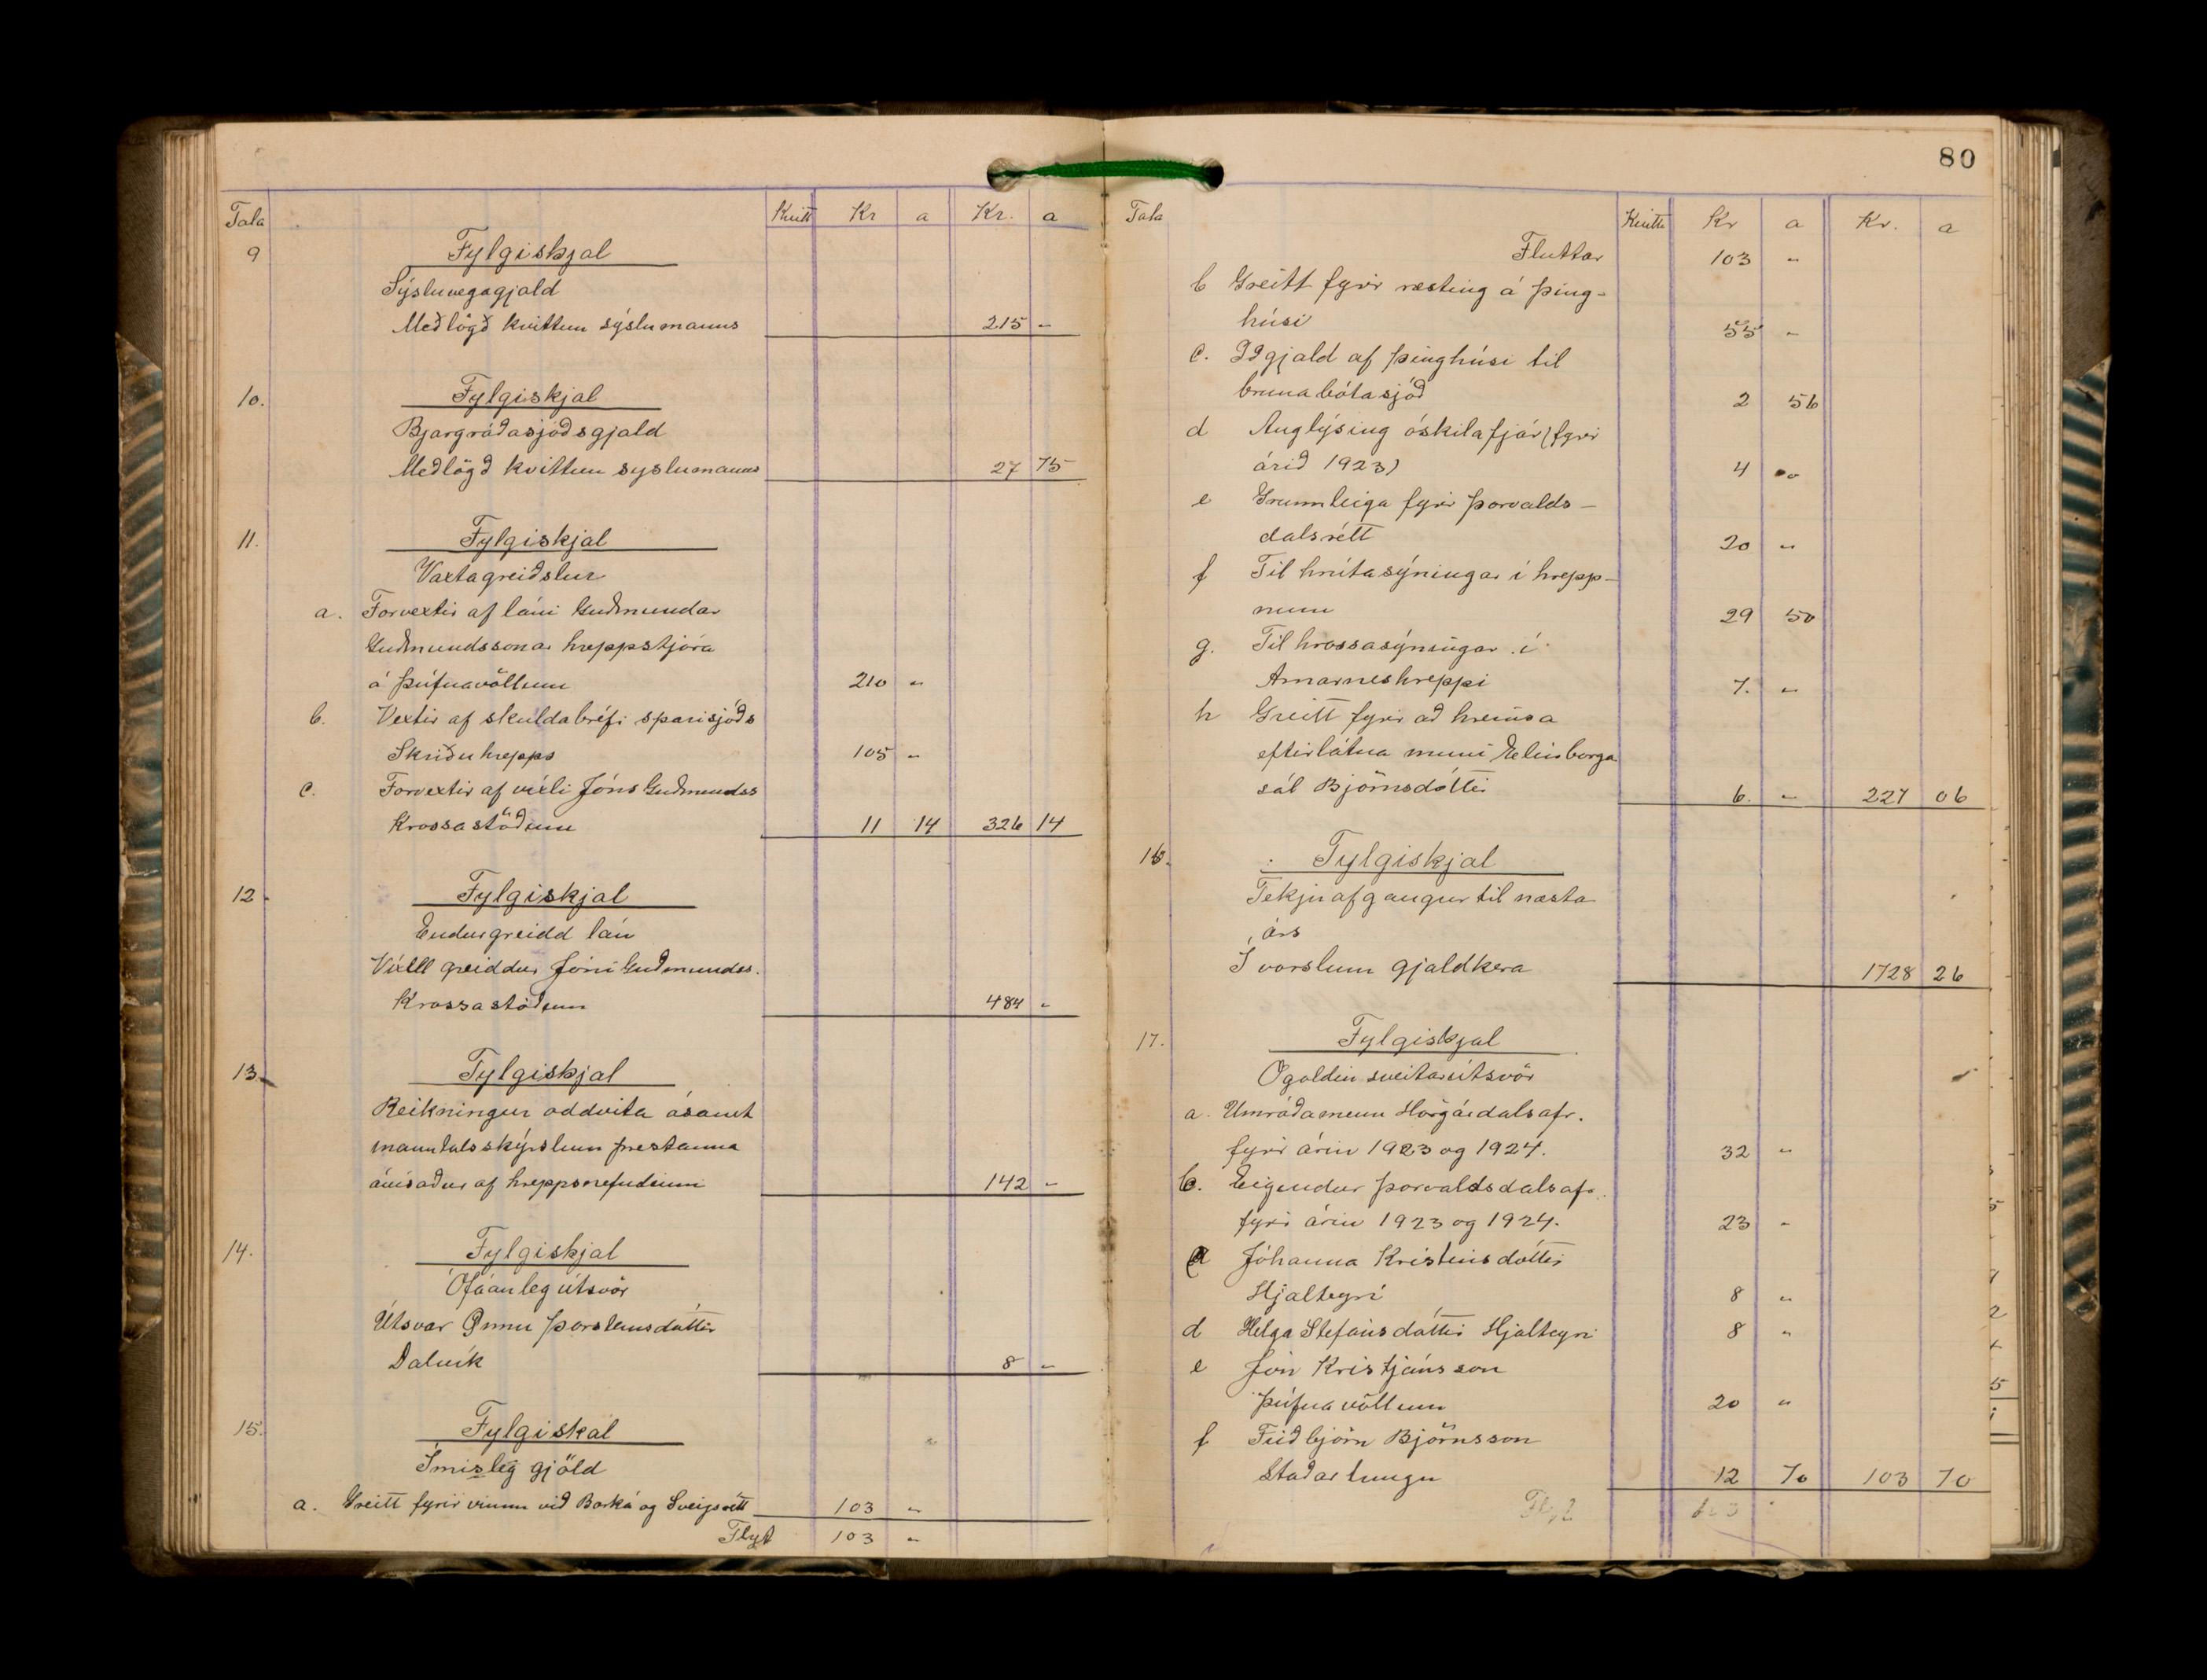 80
Tala Kvitt Kr a Kr. a
9 Fylgiskjal
Sýsluvegagjald
Meðlögð kvittun sýslumanns 215 "
10. Fylgiskjal
Bjargráðasjóðsgjald
Meðlögð kvittun syslumanns 27 75
11. Fylgiskjal
Vaxtagreiðslur
a. Forvextir af láni Guðmundar
Guðmundssonar hreppstjóra
á Þúfnavöllum 210 "
b. Vextir af skuldabréfi sparisjóðs
Skriðuhrepps 105 "
c. Forvextir af víxli Jóns Guðmundss
Krossastöðum 11 14 326 14
12. Fylgiskjal
Endurgreidd lán
Víxill greiddur Jóni Guðmundss.
Krossastöðum 484 "
13. Fylgiskjal
Reikningur oddvita ásamt
manntalsskýrslum prestanna
ávísaður af hreppsnefndinni 142 "
14. Fylgiskjal
Ófáanleg útsvör
Útsvar Önnu Þorsteinsdóttir
Dalvík 8 "
15. Fylgiskal
Ímisleg gjöld
a. Greitt fyrir vinnu við Barká og Sveigsrétt 103 "
Flyt 103 "
Tala Kvitt Kr a Kr. a
Fluttar 103 "
b Greitt fyrir ræsting á þing-
húsi 55 "
c. Iðgjald af þinghúsi til
brunabótasjóð 2 56
d Auglýsing óskilafjár (fyrir
árið 1923) 4 00
e Grunnleiga fyrir Þorvalds-
dalsrétt 20 "
f Til hrútasýningar í hrepp-
num 29 50
g. Til hrossasýningar í
Arnarneshreppi 7. "
h Greitt fyrir að hreinsa
eftirlátna muni Elinborga
sál Björnsdóttir 6. " 227 06
16. Fylgiskjal
Tekjuafgangur til næsta
árs
Í vörslum gjaldkera 1728 26
17. Fylgiskjal
Ógoldin sveitarútsvör
a. Umráðamenn Hörgárdalsafr.
fyrir árin 1923 og 1924. 32 "
b. Eigendur Þorvaldsdalsafr.
fyrir árin 1923 og 1924. 23 "
c Jóhanna Kristinsdóttir
Hjalteyri 8 "
d Helga Stefánsdóttir Hjalteyri 8 "
e Jón Kristjánsson
Þúfnavöllum 20 "
f Friðbjörn Björnsson
Staðartungu 12 70 103 70
Flyt